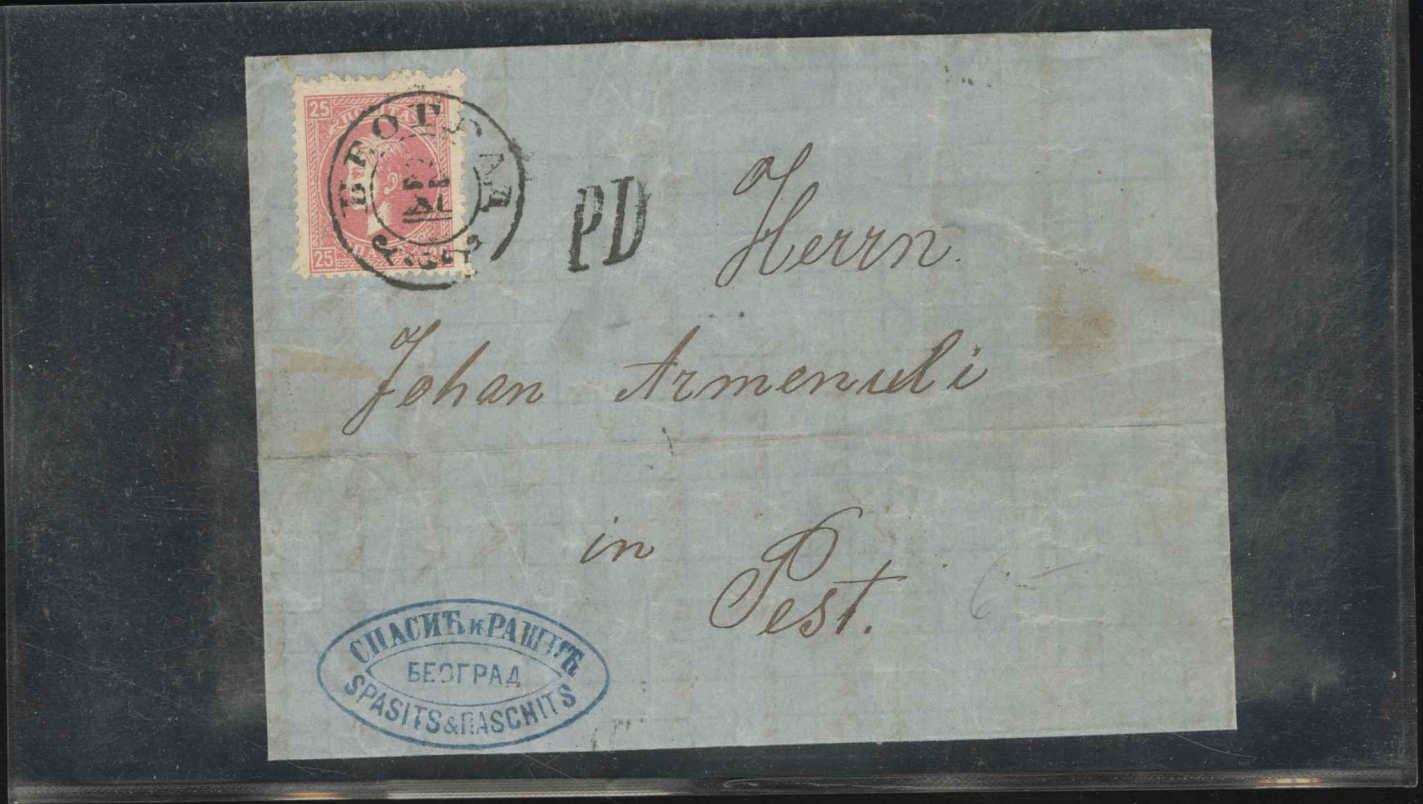 25
25
БЕОГРАД
PD
Herrn.
Johan Armenuli
in
Pest.
СПАСИЋ и РАШИЋ
БЕОГРАД
SPASITS & RASCHITS